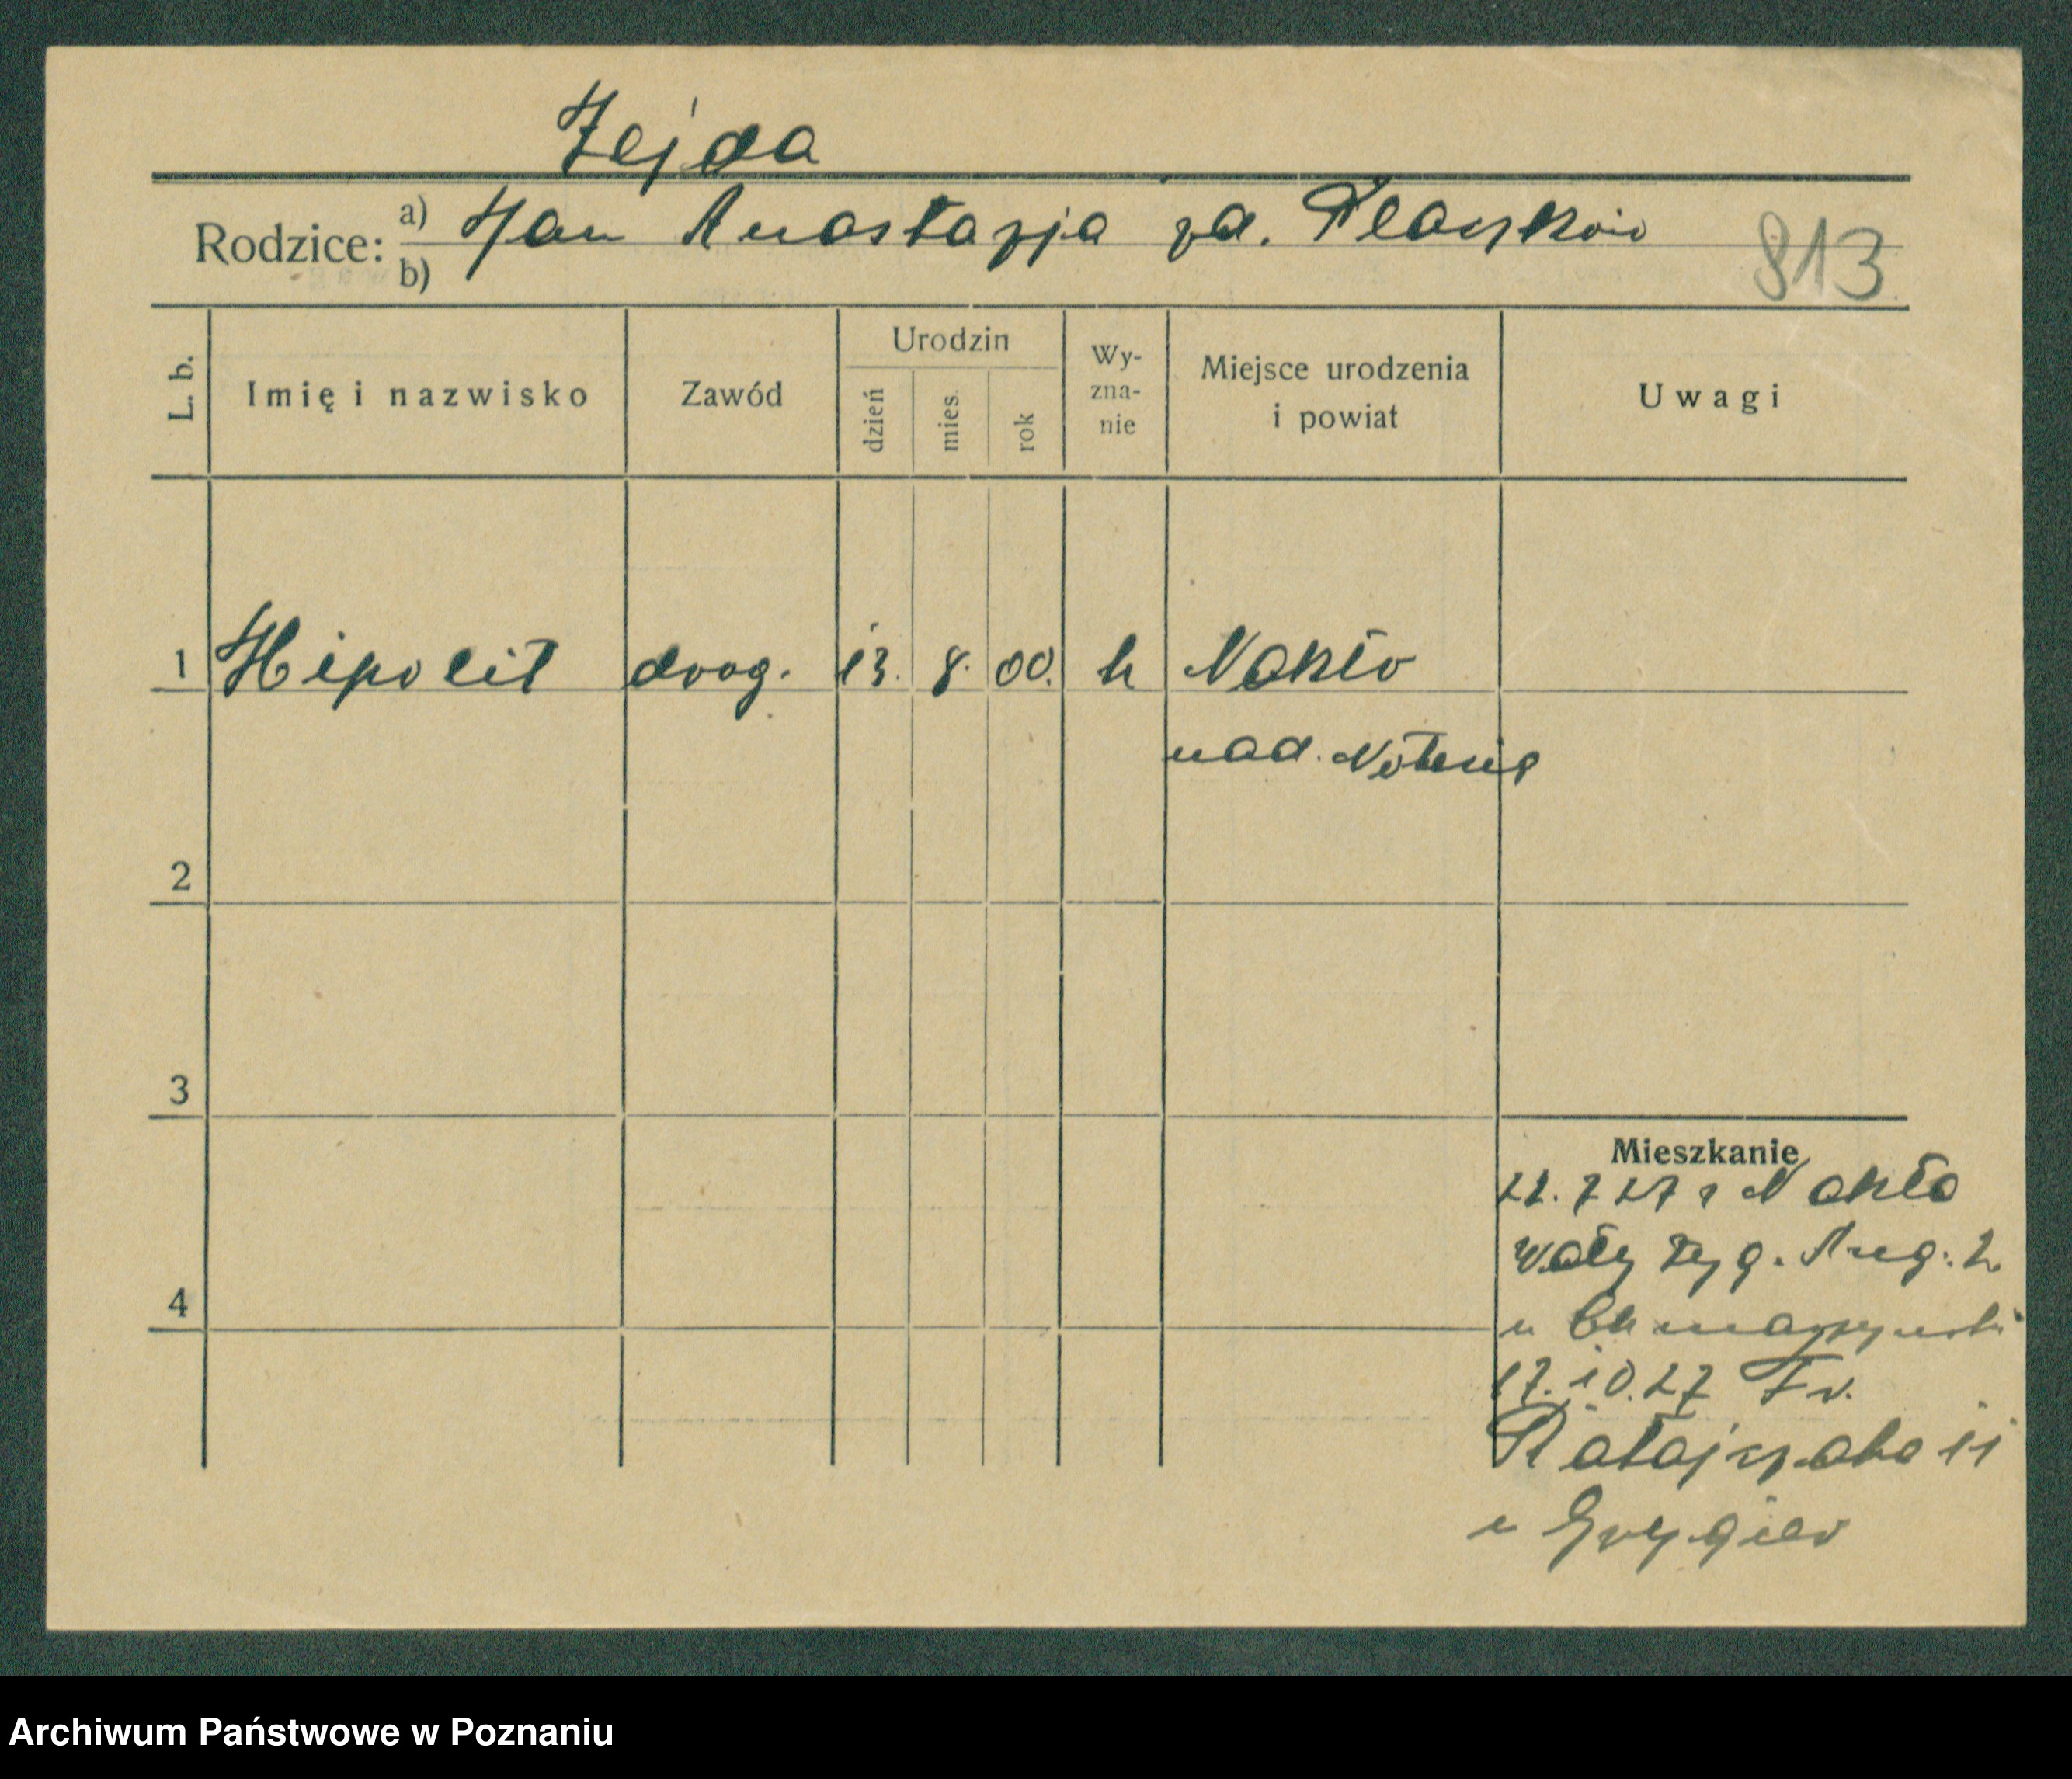 Zejda
Rodzice: a) Jan Anastazja zd.
b)
813
L. b.
Imię i nazwisko
Zawód
Urodzin
dzień
mies.
rok
Wy-
zna-
nie
Miejsce urodzenia
i powiat
Uwagi
1 Hipolit drog. 13. 8. 00. k Nakło
nad. Notecią
2
3
4
Mieszkanie
22.7 27 z Nakło
Wały Zyg. Aug. 2
u
17.10.27 Fr.
Ratajczaka 11
u
Archiwum Państwowe w Poznaniu